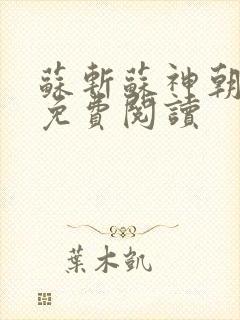 蘇斬蘇神朝
免費閱讀
葉木凱